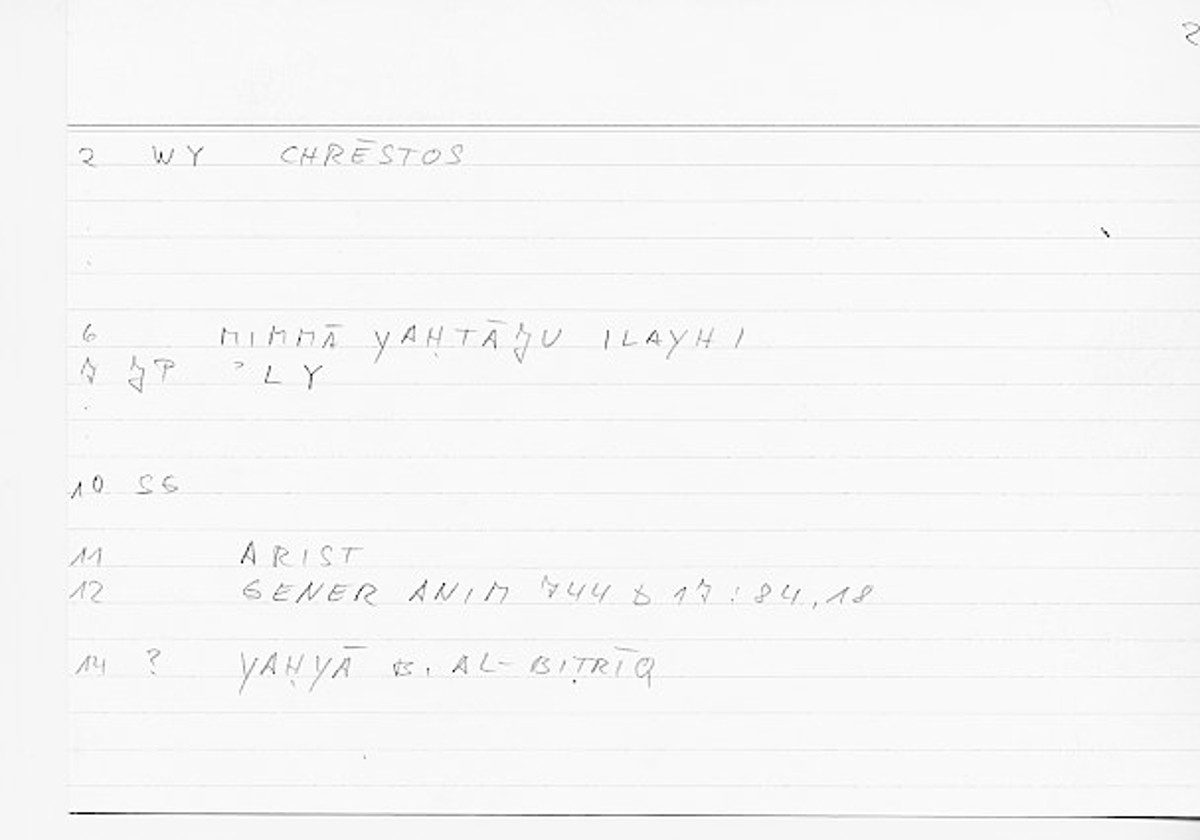 2
2 WY CHRĒSTOS
6 MIMMĀ YAḤTĀJU ILAYHI
7 JP ʾLY
10 SG
11 ARIST
12 GENER ANIM 744 b 17 : 84,18
14 ? YAḤYĀ B. AL-BIṬRĪQ